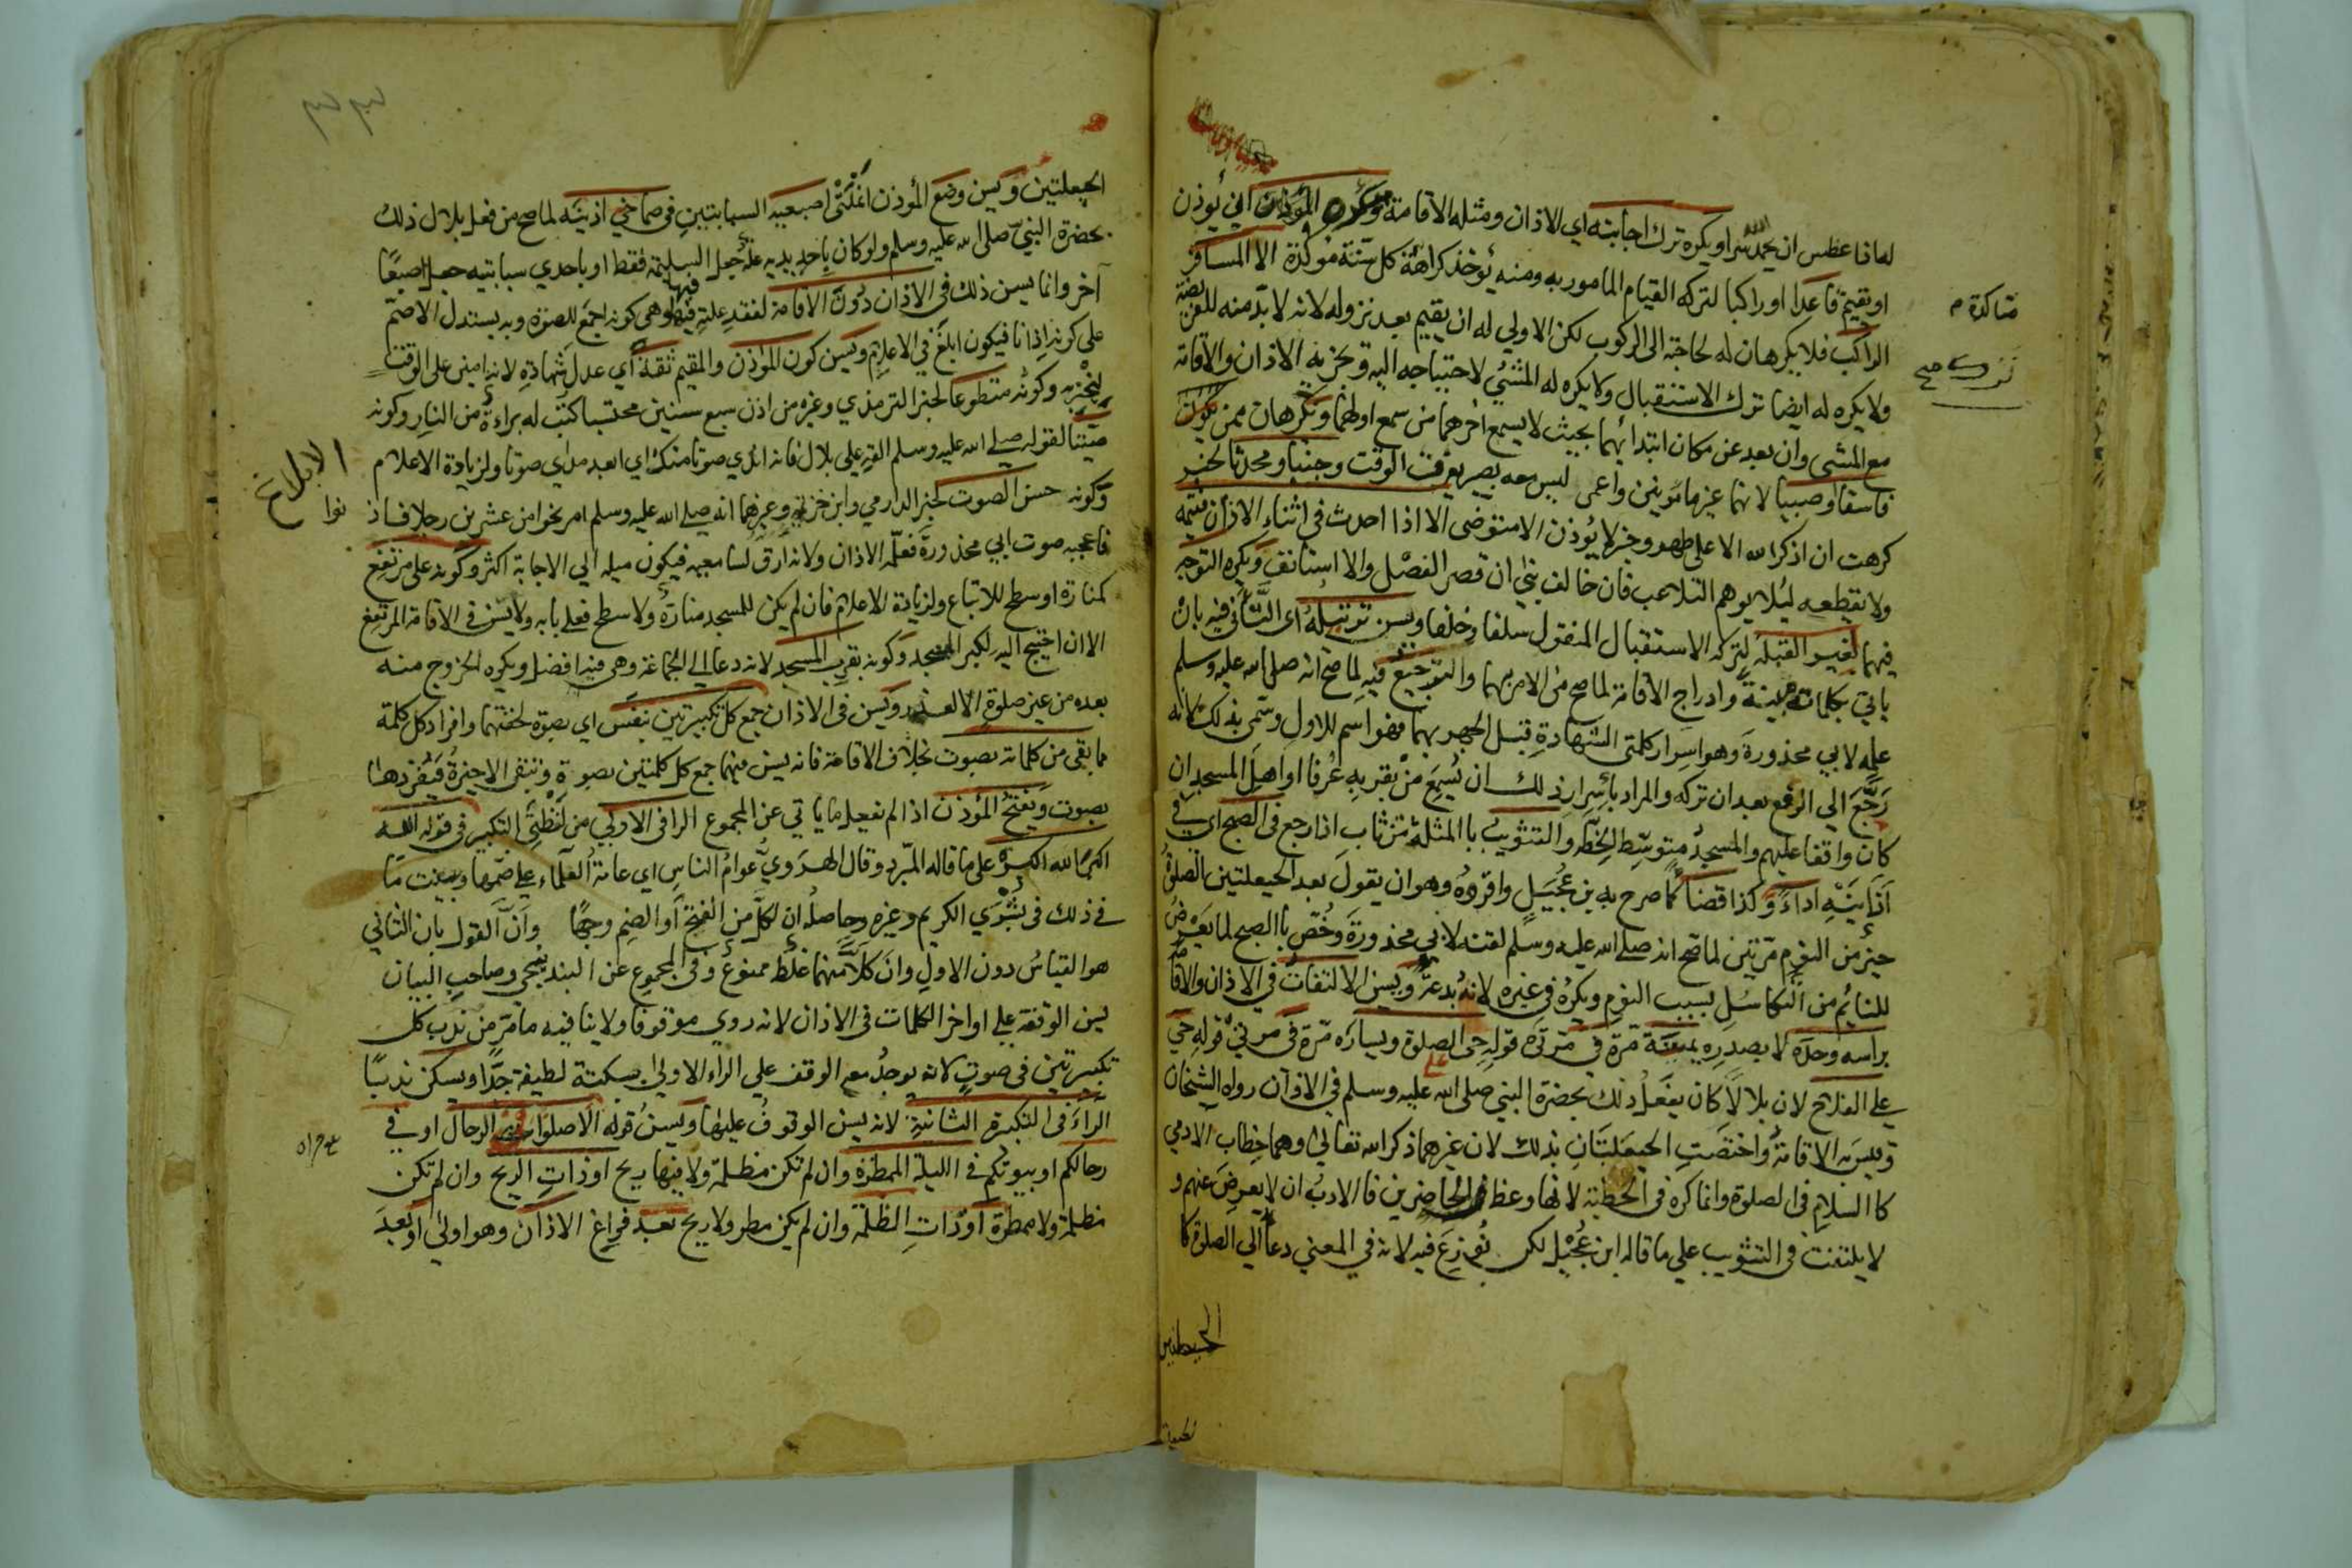 له اذا عطس ان يحمد الله سرا ويكره ترك اجابته اي الاذان ومثله الاقامة ويكره للمؤذن ان يُؤذن
او يقيم قاعدا او راكبا لتركه القيام المامور به ومنه يُوخذ كراهة كل سنة موكدة الا المسافر
الراكب فلا يكرهان له لحاجته الى الركوب لكن الاولي له ان يقيم بعد نزوله لانه لا بدّ منه للفريضة
ولا يكره له ايضا ترك الاستقبال ولا يكره له المشي لاحتياجه اليه وتجزيه الاذان والاقامة
مع المشي وان بعد عن مكان ابتدائهما بحيث لا يسمع اخرهما من سمع اولهما ويكرهان ممن يكون
فاسقا وصبيا لانهما غير مامونين واعمى ليس معه بصير يعرف الوقت وجنبا ومحدثا لخبر
كرهت ان اذكر الله الا على طهر وخبر لا يُؤذن الا متوضى الا اذا احدث في اثناء الاذان فيتمه
ولا يقطعه ليُلا يوهم التلاعب فان خالف بنى ان قصر الفصْل والا استانف ويكره التوجه
فيهما لغير القبلة لتركه الاستقبال المنقول سلفا وخلفا ويسن ترتيله اي التّأني فيه بان
ياتي بكلماته مبينةً وادراج الاقامة لما صح من الامر بهما والترجيع فيه لما صح انه صلى الله عليه وسلم
علمه لابي محذورة وهو اسرار كلمتي الشهادة قبل الجهر بهما فهو اسم للاول وسمى بذلك لانه
رَجَعَ الي الرفع بعد ان تركه والمراد باسرار ذلك ان يُسمِعَ مَنْ بقربه عُرفا او اهلَ المسجد ان
كان واقفا عليهم والمسجدُ متوسّط الخطة والتثويبُ با المثلثة من ثاب اذا رجع في الصبح اي في
اَذَانَيْهِ اداءً وكذا قضاً كما صرح به بن عُجَيلٍ واقروهُ وهو ان يقول بعد الحيعلتين الصلوةُ
خير من النوم مرّتين لما صح انه صلى الله عليه وسلم لقنه لابي محذورة وخُصّ با الصبح لما يَعْرِضُ
للنائم من التكاسُلِ بسبب النوم ويكرهُ في غيره لانه بدعةٌ ويسن الالتفات في الاذان والاقامة
براسه وحده لا بصدره يمينه مرة في مرتى قوله حى الصلوة ويساره مرّة في مرتيْ قوله حي
على الفلاح لان بلالاً كان يفعَلُ ذلك بحضرة النبي صلى الله عليه وسلم في الاذان رواه الشيخان
وقيس به الاقامةُ واختصّتِ الحيعلتانِ بذلك لان غيرهما ذكر الله تعالى وهما خطاب الادمي
كا السلامِ في الصلوة وانما كره في الخطبة لانها وعظ للحاضرين فا الادبُ ان لا يعرِضَ عنهم و
لا يلتفت في التثويب على ما قاله ابن عُجَيْل لكن نُوزِعَ فيه لانه في المعني دعا الي الصلوة كا
الحيعلتين
الحيعلتين ويسن وضع المؤذن انملتي اصبعيه السبابتين في صماخي اذنيه لما صح من فعل بلال ذلك
بحضرة النبيّ صلى الله عليه وسلم ولو كان باحدى يديه علة جعل السليمة فقط او باحدي سبابتيه جعل اصبعًا
آخر وانما يسن ذلك في الاذان دُون الاقامة لفقد علته فيها وهى كونه اجمع للصوت وبه يستدل الاصم
على كونه اذانا فيكون ابلغَ في الاعلام ويسن كون المؤذن والمقيم ثقةً اي عدلَ شهادة لانه امين على الوقت
ليخبر به وكونُه متطوعا لخبر الترمذي وغيره من اذن سبع سنين محتسبا كتب له براءةٌ من النار وكونه
صيّتا لقوله صلى الله عليه وسلم القه على بلال فانه اندي صوتا منك اي ابعد مداي صوتا ولزيادة الاعلام
وكونه حسن الصوت لخبر الدارمي وابن خزيمة وغيرهما انه صلى الله عليه وسلم امر نحوا من عشرين رجلا فاذنوا
فاعجبه صوت ابي محذورة فعلّمه الاذان ولانه ارق لسامعيه فيكون ميله الي الاجابة اكثر وكونه على مرتفع
كمنارة او سطح للاتباع ولزيادة الاعلام فان لم يكن للمسجد منارة ولا سطح فعلى بابه ولا يسن في الاقامة المرتفع
الا ان احتيج اليه لكبر المسجد وكونه بقرب المسجد لانه دعا الي الجماعة وهى فيه افضل ويكره الخروج منه
بعده من غير صلوة الا لعذر ويسن في الاذان جمع كل تكبيرتين بنفس اي بصوت لخفتهما وافراد كل كلمة
مما بقي من كلماته بصوت بخلاف الاقامة فانه يسن فيها جمع كل كلمتين بصوتٍ وتبقى الاخيرةُ فيُفردها
بصوت ويفتحُ المؤذن اذا لم يفعل ما ياتي عن المجموع الرا في الاولي من لفظتي التكبير في قوله الله
اكبر الله اكبر على ما قاله المبّرد وقال الهروي عوامُ الناس اي عامة العلماء على ضمها وبينت ما
في ذلك في بُشْرَي الكريم وغيره وحاصلُه ان لكل من الفتح او الضم وجها وانّ القول بان الثاني
هو القياسُ دون الاول وان كلاً منهما غلط ممنوعٌ وفي المجموع عن البندنيجي وصاحب البيان
يسن الوقف على اواخر الكلمات في الاذان لانه روي موقوفا ولا ينافيه ما مر من ندب كل
تكبيرتين في صوتٍ لانه يوجدُ مع الوقف على الراء الاولي بسكتة لطيفة جدًّا ويسكن ندبًا
الراءَ في التكبيرة الثانية لانه يسن الوقوفُ عليها ويسنُ قوله الا صلوا في الرحال او في
رحالكم او بيوتكم في الليلة الممطرة وان لم تكن مظلمة ولا فيها ريح او ذاتِ الريح وان لم تكن
مظلمة ولا ممطرة او ذاتِ الظلمة وان لم يكن مطر ولا ريح بعد فراغ الاذان وهو اولى او بعدَ